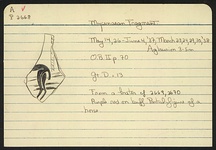 A
P 2668
Mycenaean Fragment
May 19, 26 - June 4, '37, March 23, 24, 29, '38
O.B. II p. 70
Gr. D. 13
From a krater cf. 2669, 2670
Purple red on buff. Partial figure of a
horse